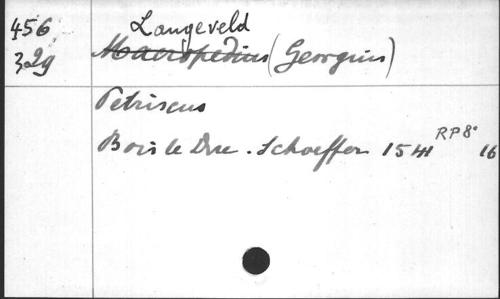 456 Langeveld
329 Macropedius (Georgius)
Petriscus
Bois le Duc. Schoeffer 1541 RP8° 16